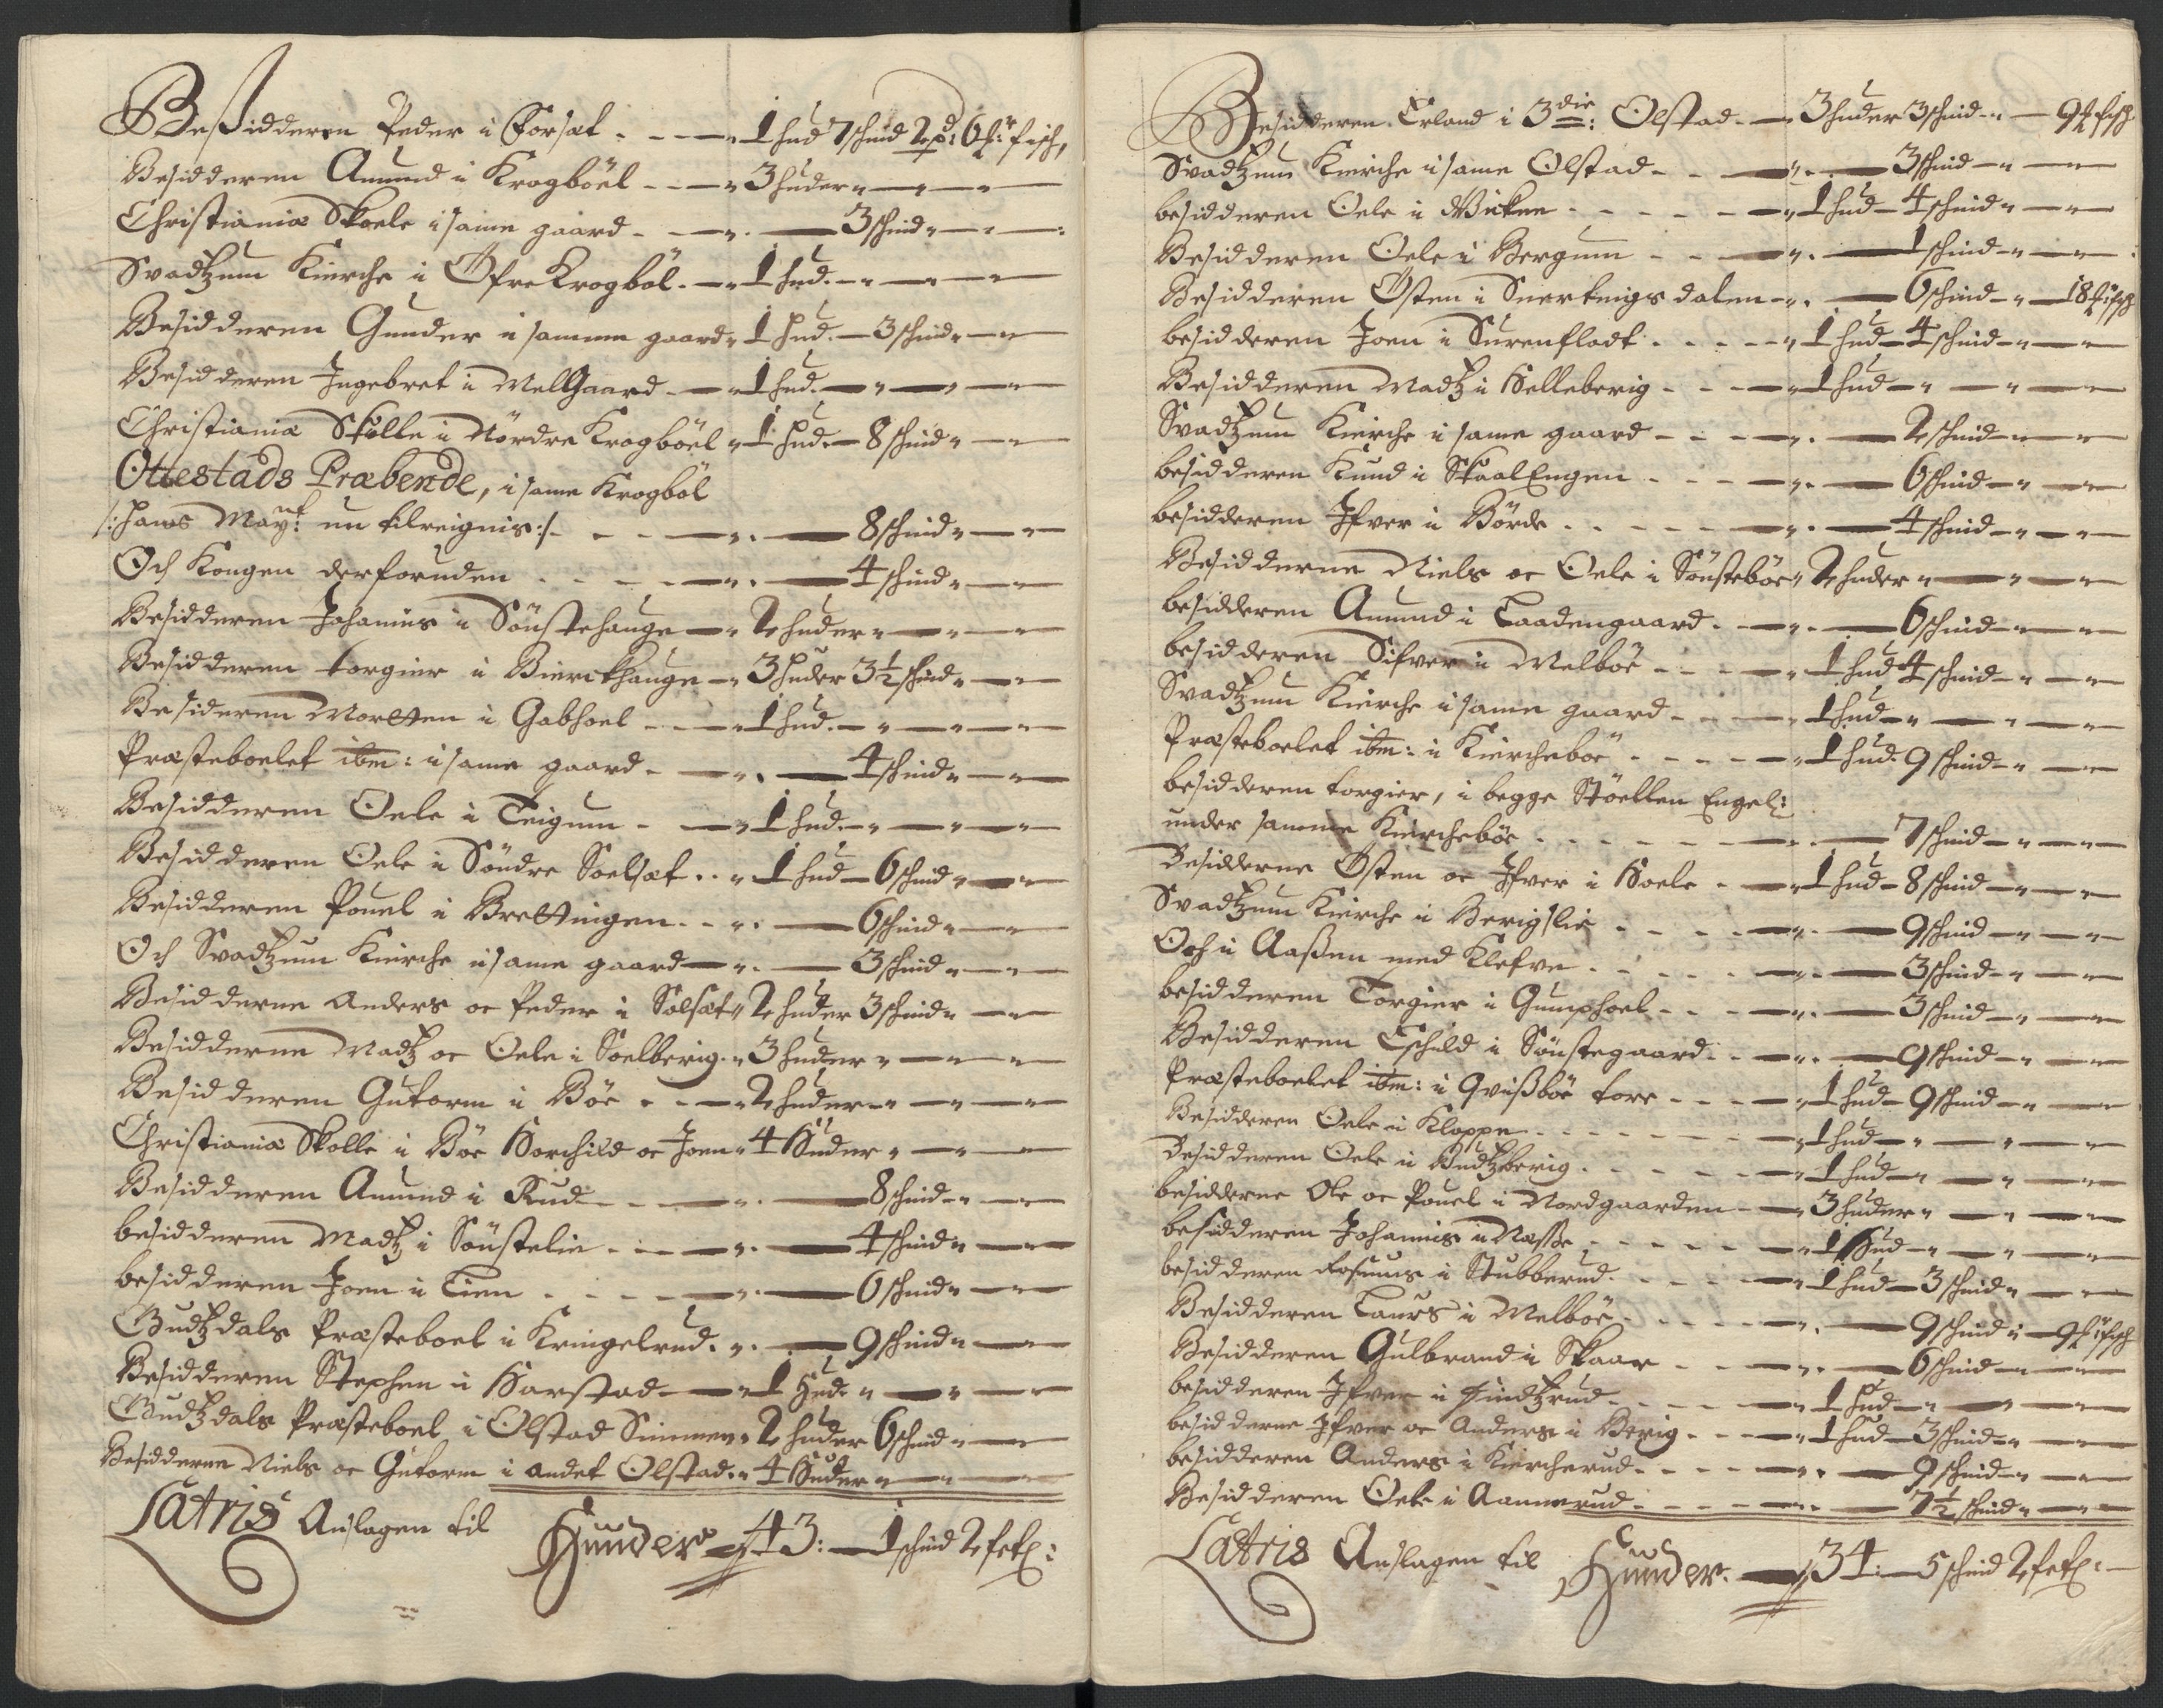 Besidderen Peder i Forsæt - - - 1 hud 7 schind 2 pd: 6 fisch,
Besidderen Amund i Krogböel - - - 3 huder
Christianiæ Skoele i same gaard - - - 3 schind
Svadtzum Kierche i Öfre Krogböl - 1 hud
Besidderen Gunder i samme gaard 1 hud - 3 schind
Besidderen Ingebret i Melgaard - 1 hud
Christianiæ Skolle i Nördre Krogböel 1 hud - 8 schind
Ottestads Præbende, i same Krogböl
/: hans Mayt: nu tilreignis :/ - - - 8 schind
Och Kongen derforuden - - - 4 schind
Besidderen Johannis i Sönstehauge - 2 huder
Besidderen torgier i Bierckhauge - 3 huder 3½ schind
Besidderen Mortten i Gabhoel - - 1 hud
Præsteboelet ibm: i same gaard - - 4 schind
Besidderen Oele i Teigum - - 1 hud
Besidderen Oele i Söndre Soelsæt - 1 hud - 6 schind
Besidderen Pouel i Brettingen - - 6 schind
Och Svadtzum Kierche i same gaard - 3 schind
Besidderne Anders oc Peder i Solsæt 2 huder 3 schind
Besidderne Madtz oc Oele i Soelberig - 3 huder
Besidderen Gutorm i Böe - - 2 huder
Christianiæ Skolle i Böe Horchild oc Joen 4 Huder
Besidderen Amund i Rud - - - 8 schind
besidderen Madtz i Sönstelie - - - 4 schind
besidderen Joen i Lien - - - 6 schind
Gudtzdals Præsteboel i Kringelrud - 9 schind
Besidderen Stephen i Harstad - 1 Hud
Gudtzdals Præsteboel i Olstad Simmen 2 huder 6 schind
Besidderne Niels oc Gutorm i andet Olstad - 4 Huder
Latris Anslagen til Huuder 43: - 1 schind 2
Besidderen Erland i 3die: Olstad - 3 huder 3 schind - 9 fisch
Svadtzum Kierche i same Olstad - - 3 schind
besidderen Oele i Wicken - - - 1 hud - 4 schind
Besidderen Oele i Bergum - - - 1 schind
Besidderen Østen i Snerkeigsdalen - 6 schind - 18 fisch
besidderen Joen i Surenflodt - - - 1 hud - 4 schind
Besidderen Madtz i Helleberig - - - 1 hud
Svadtzum Kierche i same gaard - - - 2 schind
besidderen Knud i SkaalEngen - - - 6 schind
besidderen Ifver i Börde - - - 4 schind
Besidderne Niels oc Oele i Sönsteböe 2 huder
besidderen Amund i Laadengaard - - 6 schind
besidderen Sifver i Melböe - - - 1 hud 4 schind
Svadtzum Kierche i same gaard - - - 1 hud
Præsteboelet ibm: i Kiercheböe - - - 1 hud 9 schind
besidderen torgier, i begge Stöellen Engel:
under samme Kiercheböe - - - 7 schind
Besidderne Østen oc Ifver i Hoele - 1 hud - 8 schind
Svadtzum Kierche i Berigslie - - - 9 schind
Och i Aaßen med Klefve - - - 3 schind
besidderen Torgier i Gumphoel - - - 3 schind
Besidderen Eschild i Sönstegaard - - 9 schind
Præsteboelet ibm: i Qvißböe tore - - 1 hud - 9 schind
Besidderen Oele i Kloppe - - - 1 hud
Besidderen Oele i Budtzberig - - - 1 hud
besidderne Ole oc Pouel i Nordgaarden - 3 huder
besidderen Johannis i Næsse - - - 1 Hud
besidderen Rasmus i Stubberud - - - 1 hud - 3 schind
Besidderen Laurs i Melböe - - - 9 schind - 9 fisch
Besidderen Gulbrand i Skaar - - - 6 schind
besidderen Ifver i Findtzrud - - - 1 hud
besidderne Ifver oc Anders i Berig - - 1 hud - 3 schind
besidderen Anders i Kiercherud - - - 9 schind
Besidderen Oele i Aannerud - - - 7½ schind
Latris Anslagen til Huuder - 34: - 5 schind 2